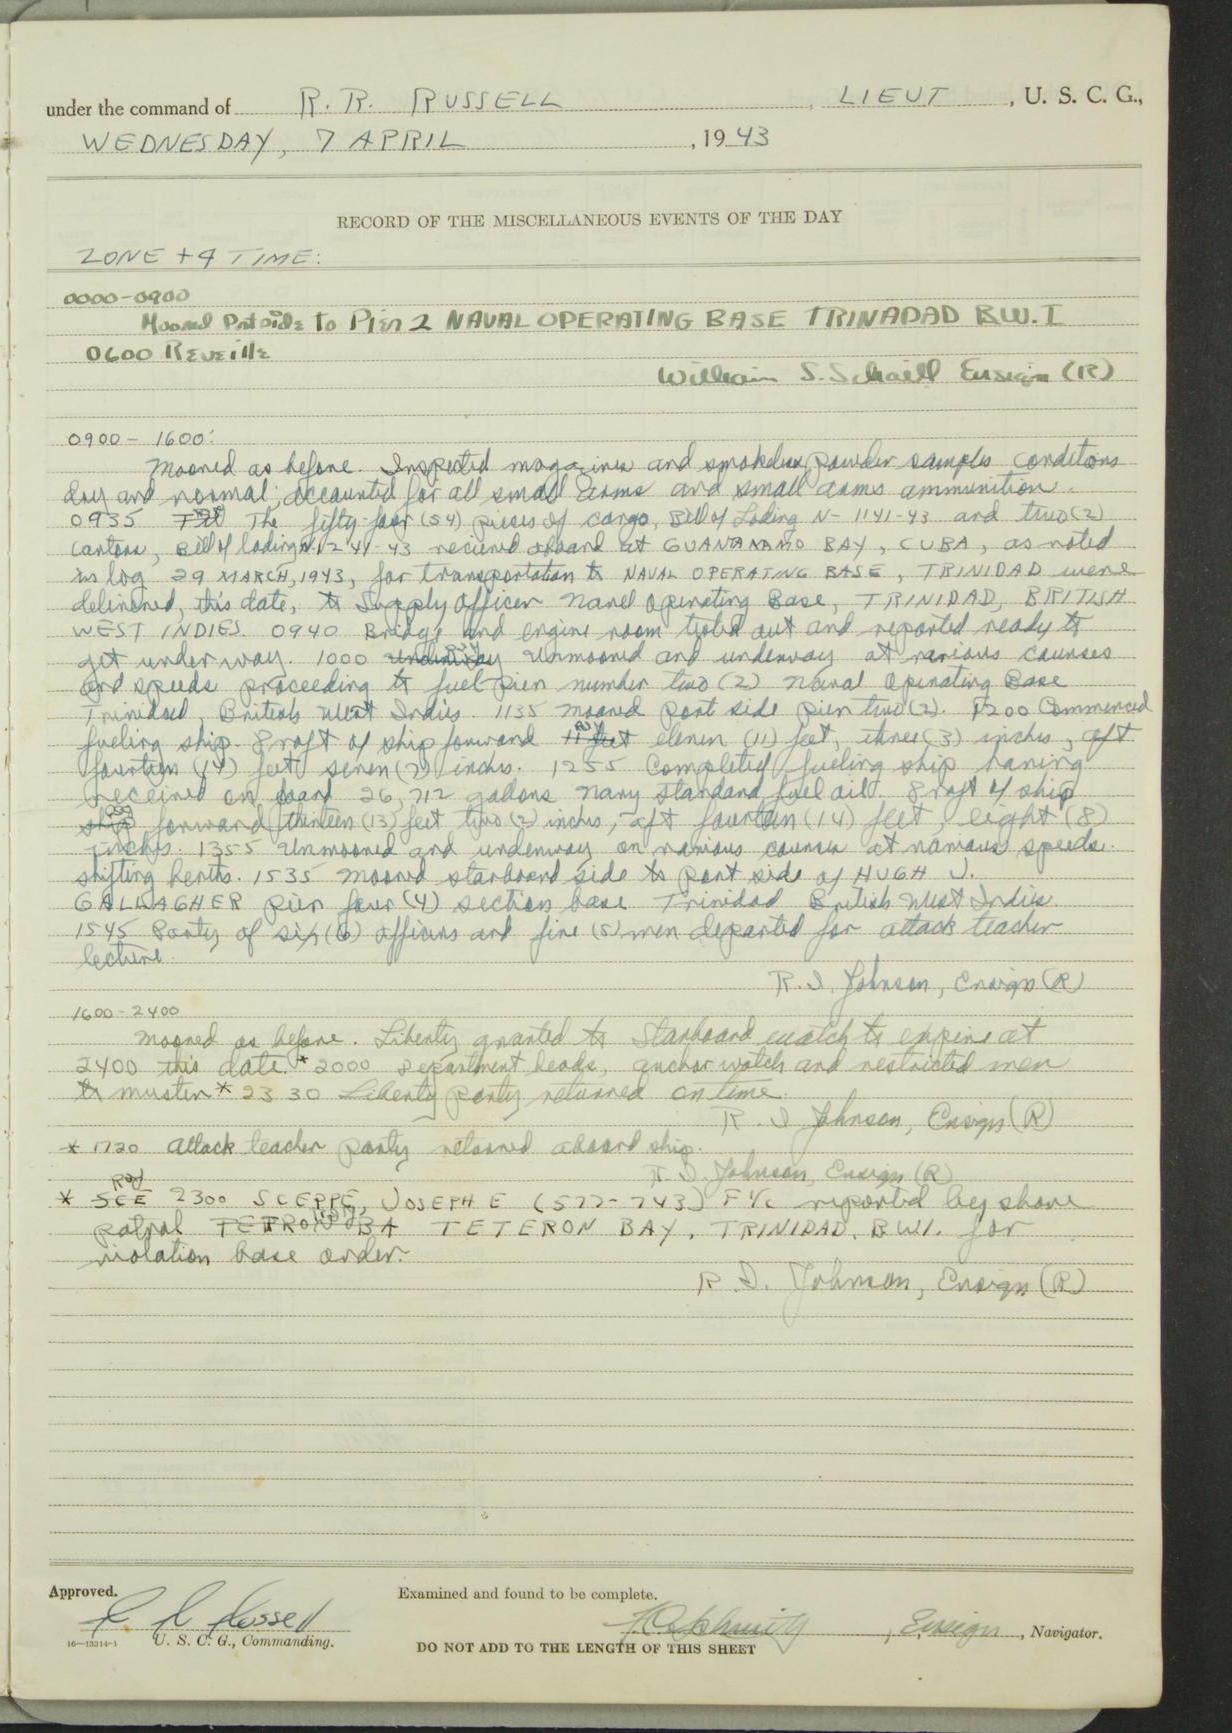 under the command of R. R. RUSSELL, LIEUT, U. S. C. G.,
WEDNESDAY, 7 APRIL, 19 43
RECORD OF THE MISCELLANEOUS EVENTS OF THE DAY
ZONE +4 TIME:
0000-0900
Moored Portside to Pier 2 NAVAL OPERATING BASE TRINADAD B.W.I
0600 Reveille
William S. Schaill Ensign (R)
0900- 1600:
Moored as before. Inspected magazines and smokeless powder samples conditions
dry and normal; accounted for all small arms and small arms ammunition.
0935 The fifty-four (54) pieces of cargo, Bill of Lading N-1141-43 and two (2)
cartons, Bill of lading N1241-43 recieved aboard at GUANTANAMO BAY, CUBA, as noted
in log 29 MARCH, 1943, for transportation to NAVAL OPERATING BASE, TRINIDAD were
delivered, this date, to Supply Officer Naval Operating Base, TRINIDAD, BRITISH
WEST INDIES. 0940 Bridge and engine room tested out and reported ready to
get under way. 1000 underway Unmoored and underway at various courses
and speeds proceeding to fuel pier number two (2) Naval Operating Base
Trinidad, British West Indies. 1135 moored port side pier two (2). 1200 Commenced
fueling ship. Draft of ship forward 11 feet eleven (11) feet, three (3) inches, aft
fourteen (14) feet seven (7) inches. 1255 Completed fueling ship having
received on board 26,712 gallons Navy Standard fuel oil. Draft of ship
ship forward thirteen (13) feet two (2) inches, aft fourteen (14) feet, eight (8)
inches. 1355 Unmoored and underway on various courses at various speeds
shifting berths. 1535 Moored starboard side to port side of HUGH J.
GALLAGHER pier four (4) section base Trinidad British West Indies.
1545 Party of six (6) officers and five (5) men departed for attack teacher
lecture.
R. I. Johnson, Ensign (R)
1600-2400
Moored as before. Liberty granted to Starboard watch to expire at
2400 this date.* 2000 Department heads, anchor watch and restricted men
to muster * 2330 Liberty party returned on time.
R. I Johnson, Ensign (R)
* 1720 Attack teacher party returned aboard ship.
R. I. Johnson, Ensign (R)
* SCE 2300 SCEPPE, JOSEPH E (577-743) F1/c reported by shore
patrol TETRON BA TETERON BAY, TRINIDAD, B.W.I. for
violation base order.
R. I. Johnson, Ensign (R)
Approved. Examined and found to be complete.
R R Russell, Ensign, Navigator.
16—13314-1 U. S. C. G., Commanding.
DO NOT ADD TO THE LENGTH OF THIS SHEET